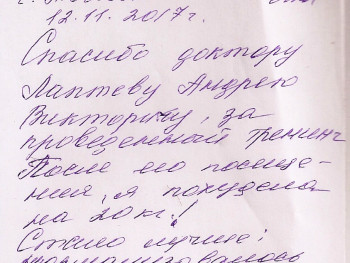 12.11.2017г.
Спасибо доктору
Лаптеву Андрею
Викторичу, за
проведенный тренинг
После его посеще-
ния, я похудела
на 20 кг.!
Стало лучше: